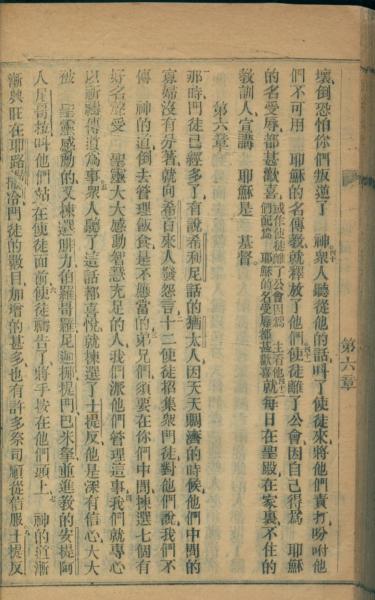 第六章
壞、倒恐怕你們叛逆了 神、衆人聽從他的話、叫了使徒來、將他們責打、吩咐他
們不可用 耶穌的名傳教、就釋放了他們、使徒離了公會、因自己得爲 耶穌
的名受辱、都甚歡喜、就每日在聖殿在家裏、不住的
教訓人、宣講 耶穌是 基督。
第六章
那時門徒已經多了、有說希利尼話的猶太人、因天天賙濟的時候、他們中間的
寡婦沒有分着、就向希百來人發怨言、十二使徒招集衆門徒、對他們說、我們不
傳 神的道、倒去管理飯食、是不應當的、弟兄們、須要在你們中間揀選七個有
好名聲、受 聖靈大大感動、智慧充足的人、我們派他們管理這事、我們就專心
以祈禱傳道爲事、衆人聽了這話、都喜悅、就揀選了士提反、他是深有信心、大大
被 聖靈感動的、又揀選腓力、伯羅哥羅、尼迦挪、提門、巴米拿、並進教的安提阿
人尼哥拉、叫他們站在使徒面前、使徒禱告了、將手按在他們頭上、 神的道漸
漸興旺、在耶路撒冷門徒的數目加增的甚多、也有許多祭司順從信服、士提反